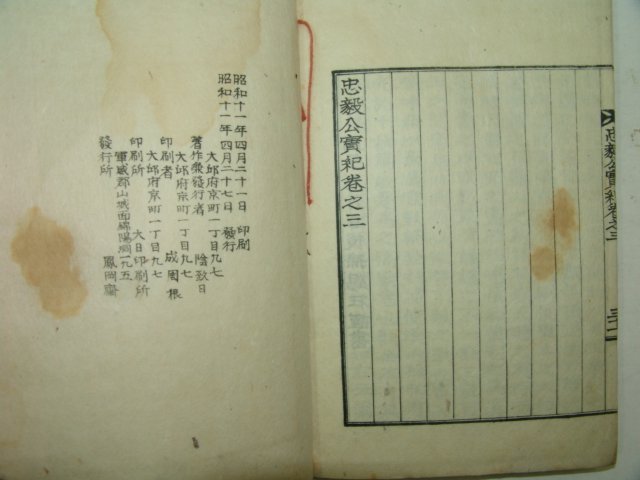 忠毅公實紀卷之三
忠毅公實紀卷之三
昭和十一年四月二十一日 印刷
昭和十一年四月二十七日 發行
大邱府京町一丁目九七
著作兼發行者 陰致日
大邱府京町一丁目九七
印刷者 成周根
大邱府京町一丁目九七
印刷所 大日印刷所
軍威郡山城面 陽洞一九五
發行所 鳳岡齋